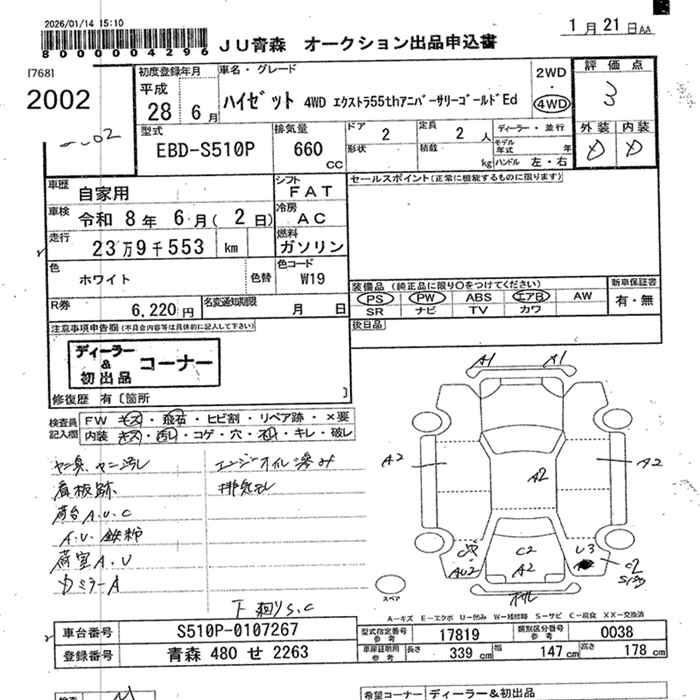 2026/01/14 15:10
8000004296
JU青森 オークション出品申込書
1月21日AA
[768]
2002
初度登録年月
平成
28 6月
車名・グレード
ハイゼット 4WD エクストラ55thアニバーサリーゴールドEd
2WD
・
4WD
評価点
3
型式
EBD-S510P
排気量
660
CC
ドア 2
形状
定員 2 人
積載 kg
ディーラー・並行
モデル年式 年
ハンドル 左・右
外装 内装
D D
車歴
自家用
シフト
FAT
セールスポイント(正常に機能するものに限ります)
車検
令和 8年 6月( 2日)
冷房
AC
走行
23万9千553 km
燃料
ガソリン
色
ホワイト
色替
色コード
W19
装備品 (純正品に限り○をつけてください)
PS PW ABS エアB AW
SR ナビ TV カワ
新車保証書
有・無
R券
6,220円
名変通知期限
月 日
後日品
注意事項申告欄(不具合内容等は具体的に記入して下さい)
ディーラー
&
初出品
コーナー
修復歴 有〔箇所 〕
検査員
記入欄
FW キズ・飛石・ヒビ割・リペア跡・×要
内装 キズ・汚れ・コゲ・穴・ヌレ・キレ・破レ
ヤニ臭、ヤニ汚レ
エンジンオイル滲み
看板跡
排気モレ
荷台A.U.C
A.U.鉄粉
荷室A.U
カミラーA
下廻りS.C
A1 A1
A2 A2
A2
C2 U3
AU2 A2 C2
スペア
A-キズ E-エクボ U-凹み W-補修跡 S-サビ C-腐食 XX-交換済
車台番号 S510P-0107267
型式指定番号
参考
17819
類別区分番号
参考
0038
登録番号 青森 480 せ 2263
車庫証明用
参考
長さ 339 cm
幅 147 cm
高さ 178 cm
希望コーナー ディーラー&初出品